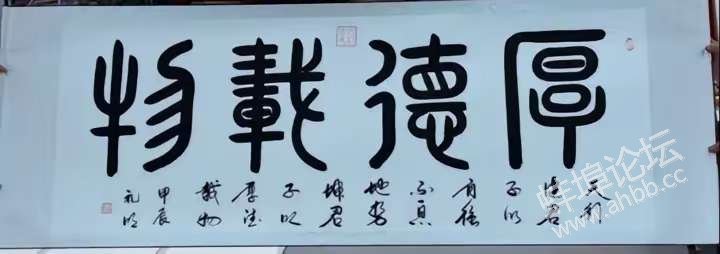 厚德載物
天行
健君
子以
自强
不息
地势
坤君
子以
厚德
载物
甲辰
蚌埠论坛
www.ahbb.cc